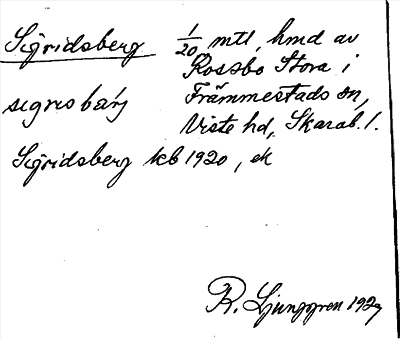 Sigridsberg 1/20 mtl, hmd av
Rossbo Stora i
Främmestads sn,
Viste hd, Skarab. l.
Sigridsberg kb 1920, ek
R. Ljunggren 1929